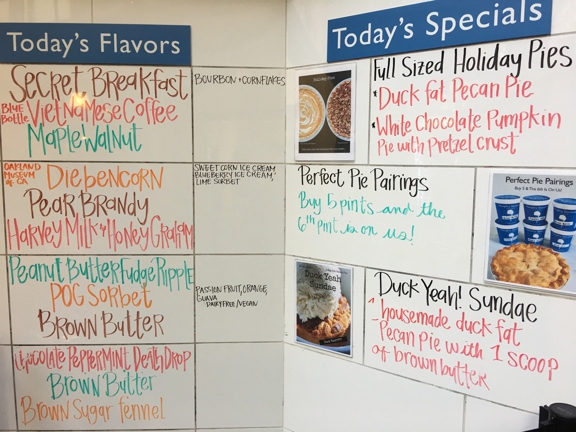 Today's Flavors
Secret Breakfast
BOURBON + CORNFLAKES
BLUE BOTTLE VIETNAMESE COFFEE
MAPLE WALNUT
OAKLAND MUSEUM of CA
DIEBENCORN
SWEET CORN ICE CREAM
BLUEBERRY ICE CREAM
LIME SORBET
PEAR BRANDY
HARVEY MILK & HONEY GRAHAM
PEANUT BUTTER FUDGE RIPPLE
POG SORBET
PASSION FRUIT, ORANGE,
GUAVA
DAIRY FREE/VEGAN
BROWN BUTTER
CHOCOLATE PEPPERMINT DEATH DROP
BROWN BUTTER
BROWN SUGAR FENNEL
Today's Specials
Full Sized Holiday Pies
* Duck Fat Pecan Pie
* White Chocolate Pumpkin
Pie with Pretzel crust
Perfect Pie Pairings
Buy 5 pints and the
6th pint is on us!
Perfect Pie Pairings
Buy 5 & The 6th Is On Us!
Duck Yeah
Sundae
Duck Yeah! Sundae
1 housemade duck fat
Pecan pie with 1 scoop
of brown butter